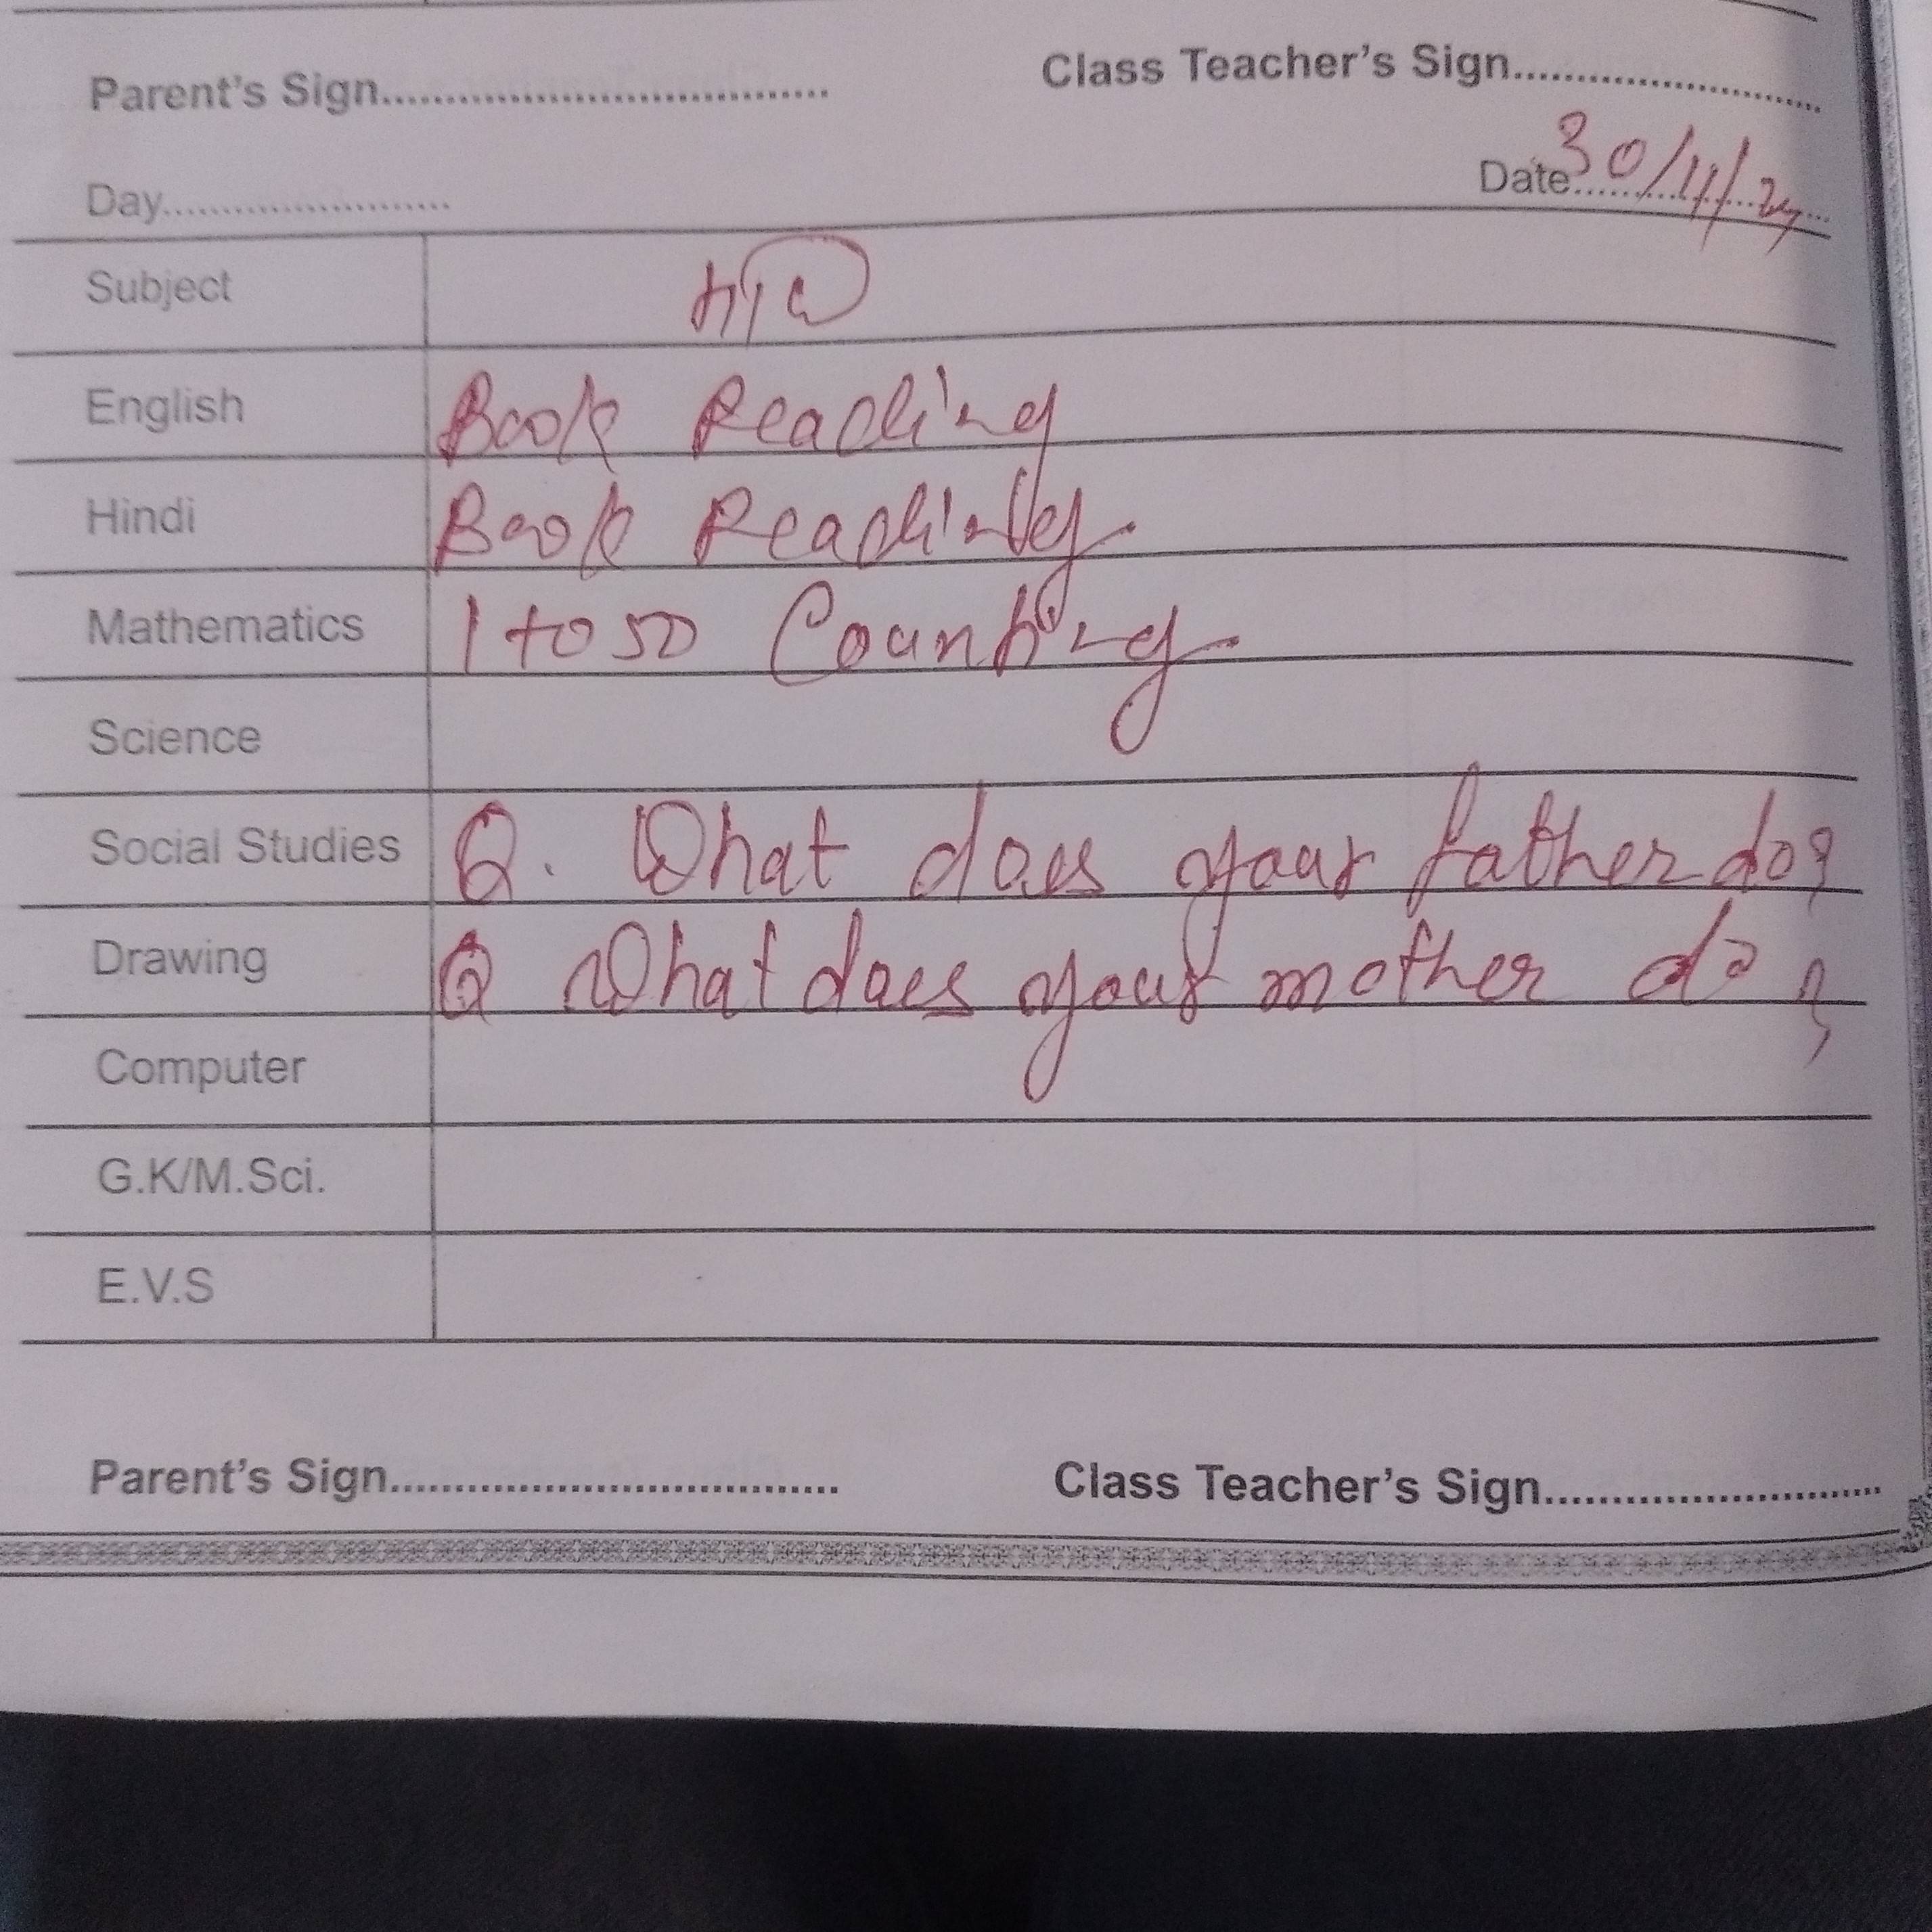 Parent's Sign.................................... Class Teacher's Sign........................
Day........................ Date 30/11/24
Subject H/W
English Book Reading
Hindi Book Reading
Mathematics 1 to 50 Counting
Science
Social Studies Q. What does your father do?
Drawing Q What does your mother do?
Computer
G.K/M.Sci.
E.V.S
Parent's Sign.................................... Class Teacher's Sign...........................